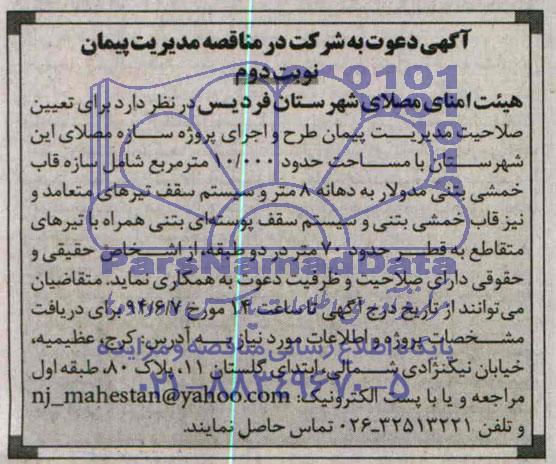 آگهی دعوت به شرکت در مناقصه مدیریت پیمان
نوبت دوم
هیئت امنای مصلای شهرستان فردیس در نظر دارد برای تعیین
صلاحیت مدیریت پیمان طرح و اجرای پروژه سازه مصلای این
شهرستان با مساحت حدود ۱۰/۰۰۰ مترمربع شامل سازه قاب
خمشی بتنی مدولار به دهانه ۸ متر و سیستم سقف تیرهای متعامد و
نیز قاب خمشی بتنی و سیستم سقف پوسته‌ای بتنی همراه با تیرهای
متقاطع به قطر حدود ۷۰ متر در دو طبقه، از اشخاص حقیقی و
حقوقی دارای صلاحیت و ظرفیت دعوت به همکاری نماید. متقاضیان
می‌توانند از تاریخ درج آگهی تا ساعت ۱۴ مورخ ۹۴/۶/۷ برای دریافت
مشخصات پروژه و اطلاعات مورد نیاز به آدرس: کرج، عظیمیه،
خیابان نیکنژادی شمالی، ابتدای گلستان ۱۱، پلاک ۸۰، طبقه اول
مراجعه و یا با پست الکترونیک: nj_mahestan@yahoo.com
و تلفن ۳۲۵۱۳۲۲۱-۰۲۶ تماس حاصل نمایند.
ParsNamadData
پایگاه اطلاع رسانی مناقصه و مزایده
۰۲۱-۸۸۳۴۹۶۷۰-۵